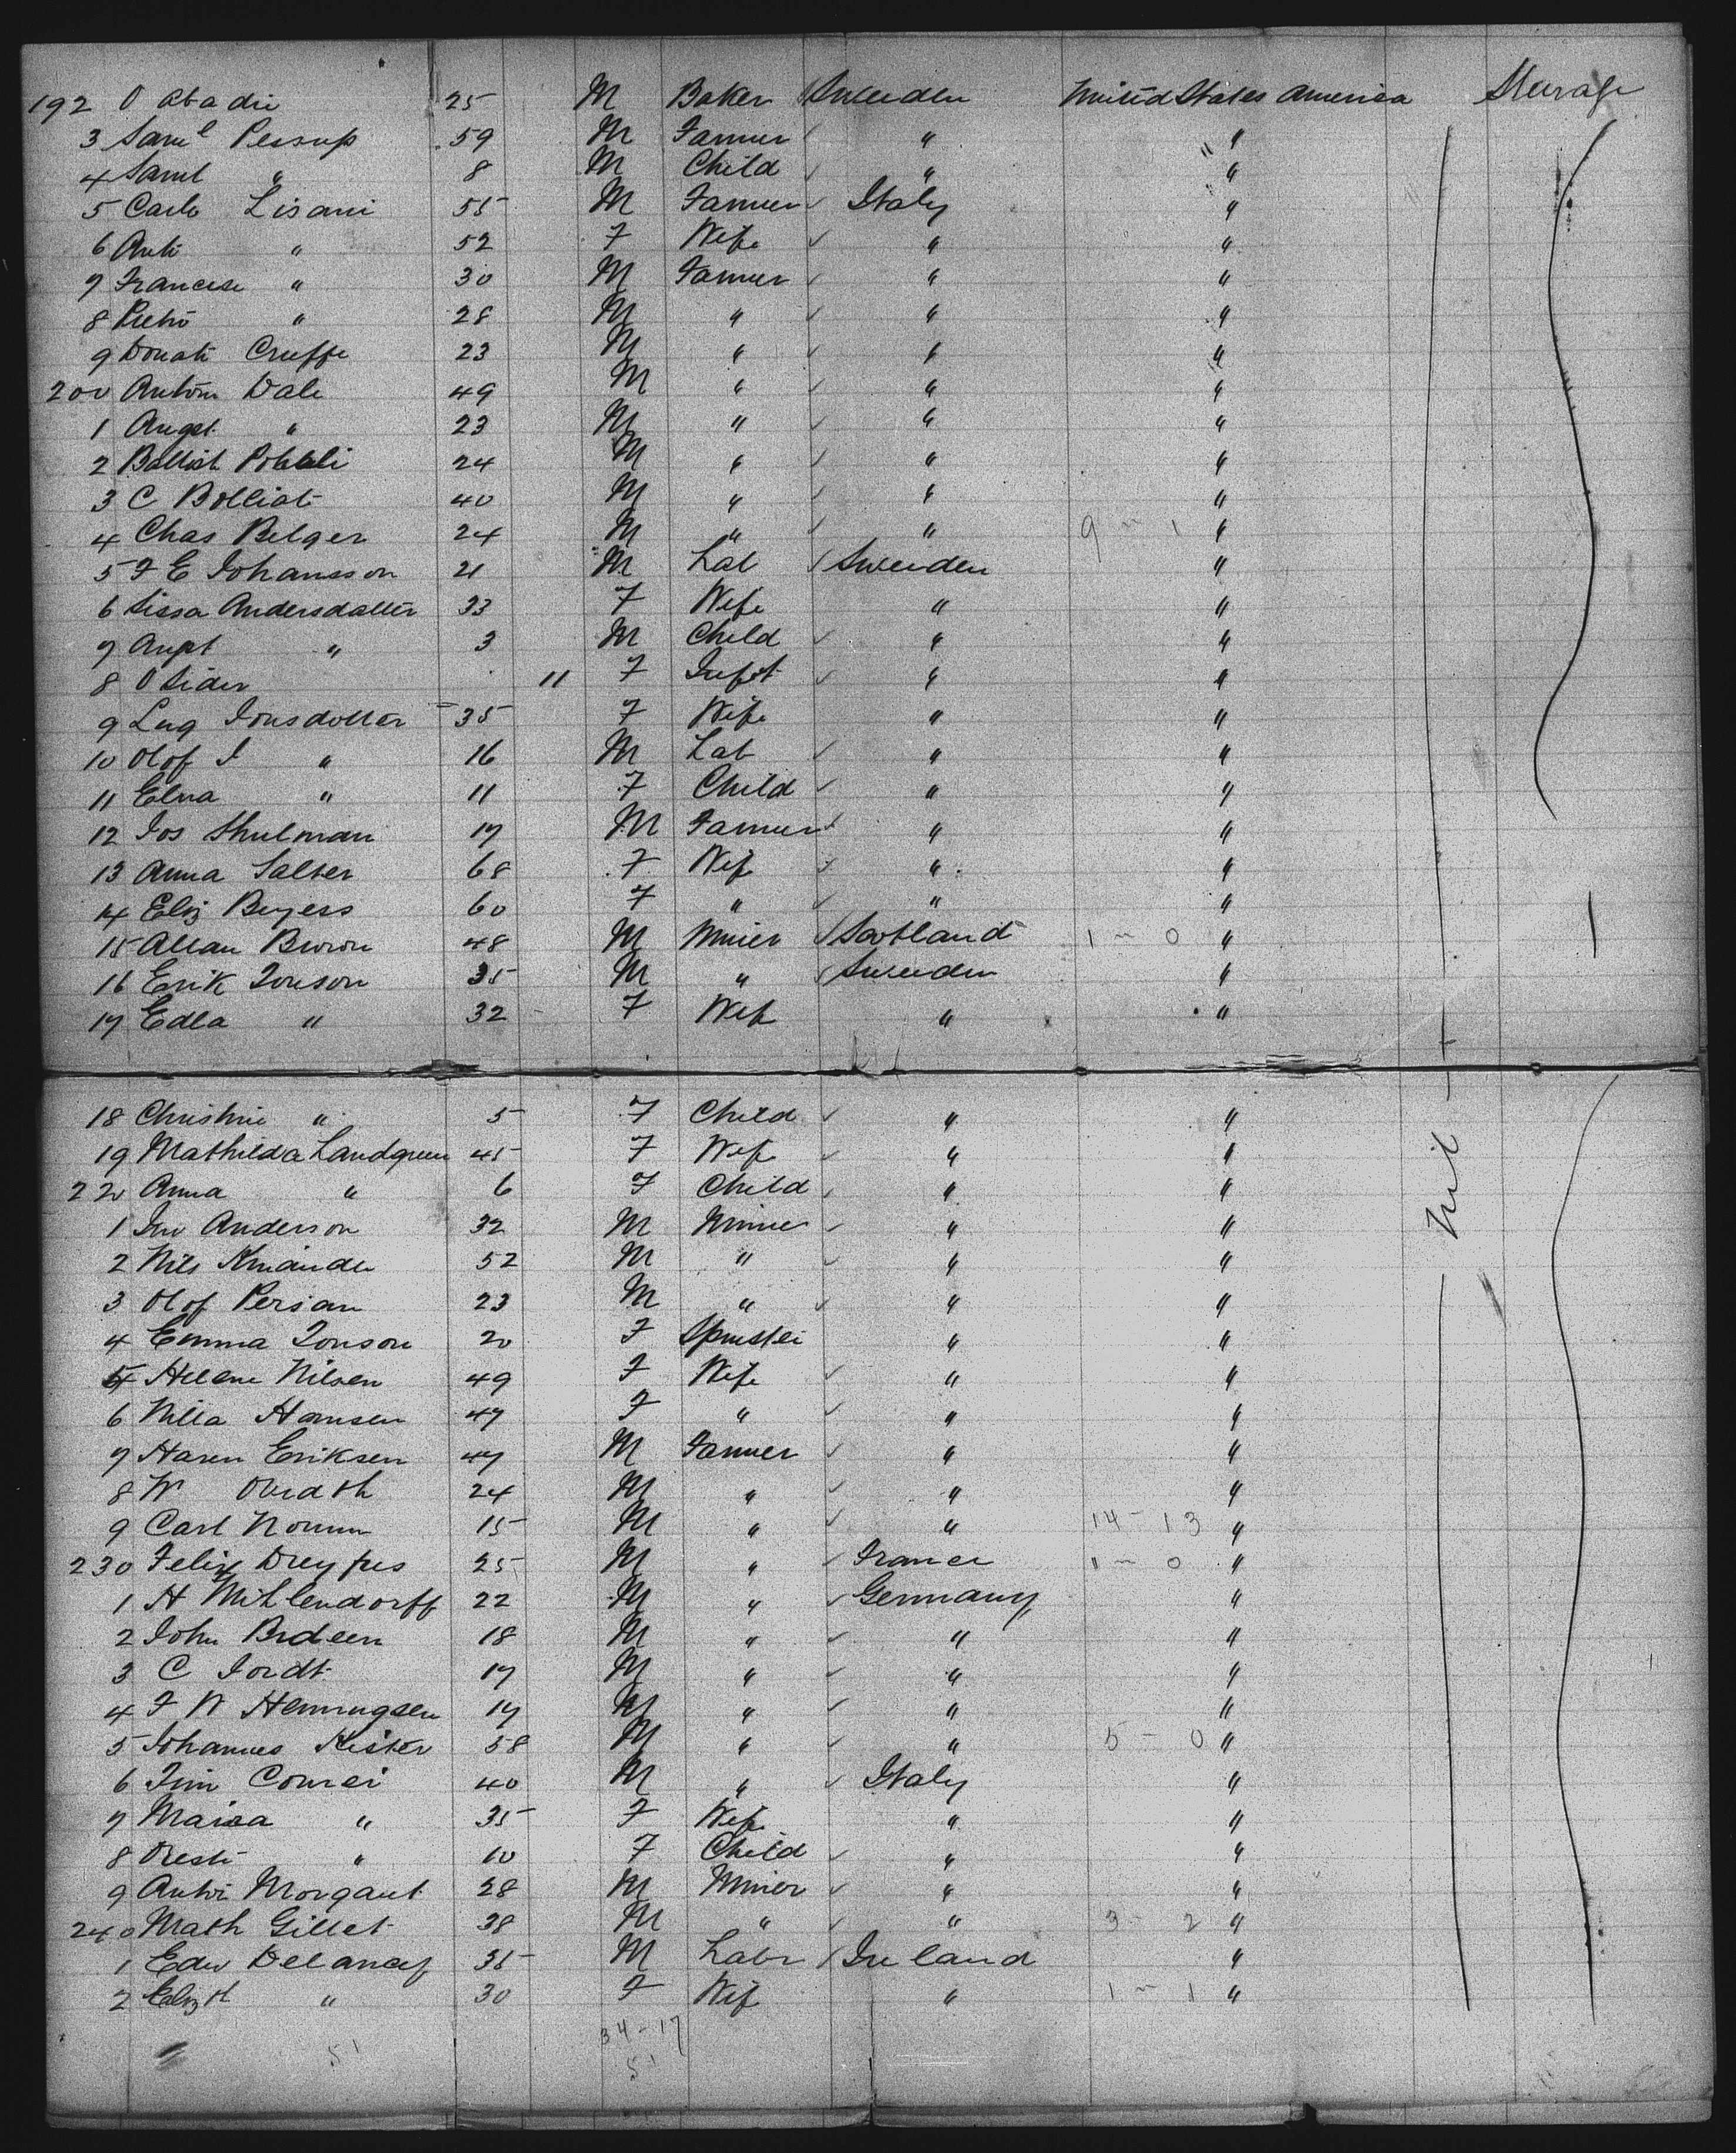 192 O Abadie 25 M Baker Sweeden United States America Steerage
3 Saml Pessup 59 M Farmer " "
4 Saml " 8 M Child " "
5 Carlo Lisani 55 M Farmer Italy "
6 Anto " 52 F Wife " "
7 Francese " 30 M Farmer " "
8 Pietro " 28 M " " "
9 Donati Cruffe 23 M " " "
200 Antoni Dale 49 M " " "
1 Angel " 23 M " " "
2 Battist 24 M " " "
3 C Bolliat 40 M " " "
4 Chas Belger 24 M " " 9 - 1 "
5 F E Johansson 21 M Lab Sweeden "
6 Sissa Andersdatter 33 F Wife " "
7 Augt " 3 M Child " "
8 O Sider 11 F Infnt " "
9 Lug Jonsdotter 35 F Wife " "
10 Olof J " 16 M Lab " "
11 Elna " 11 F Child " "
12 Jos Shulman 17 M Farmer " "
13 Anna Salter 68 F Wife " "
14 Eliz Beyers 60 F " " "
15 Allan Brown 48 M Miner Scotland 1 - 0 "
16 Erik Jonson 35 M " Sweeden "
17 Edla " 32 F Wife " "
18 Christine " 5 F Child " "
19 Mathilda Landgreen 45 F Wife " " Nil
220 Anna " 6 F Child " "
1 Jno Anderson 32 M Miner " "
2 Nils 52 M " " "
3 Olof Persan 23 M " " "
4 Emma Jonson 20 F Spinster " "
5 Helene Nilsen 49 F Wife " "
6 Nilla Hamsen 47 F " " "
7 Haren Eriksen 47 M Farmer " "
8 W 24 M " " "
9 Carl Nornn 15 M " " 14 - 13 "
230 Felix Dreyfus 25 M " France 1 - 0 "
1 H Mihlendorff 22 M " Germany "
2 John Brdeen 18 M " " "
3 C Jordt 17 M " " "
4 F W Hemmingsen 17 M " " "
5 Johannes Kister 58 M " " 5 - 0 "
6 Jim Comei 40 M " Italy "
7 Maria " 35 F Wife " "
8 Oresti " 10 F Child " "
9 Antoi Morgant 28 M Miner " "
240 Math Gillet 38 M " " 3 - 2 "
1 Edw Delancey 35 M Labr Ireland "
2 Elizth " 30 F Wife " 1 - 1 "
34 - 17
51 51